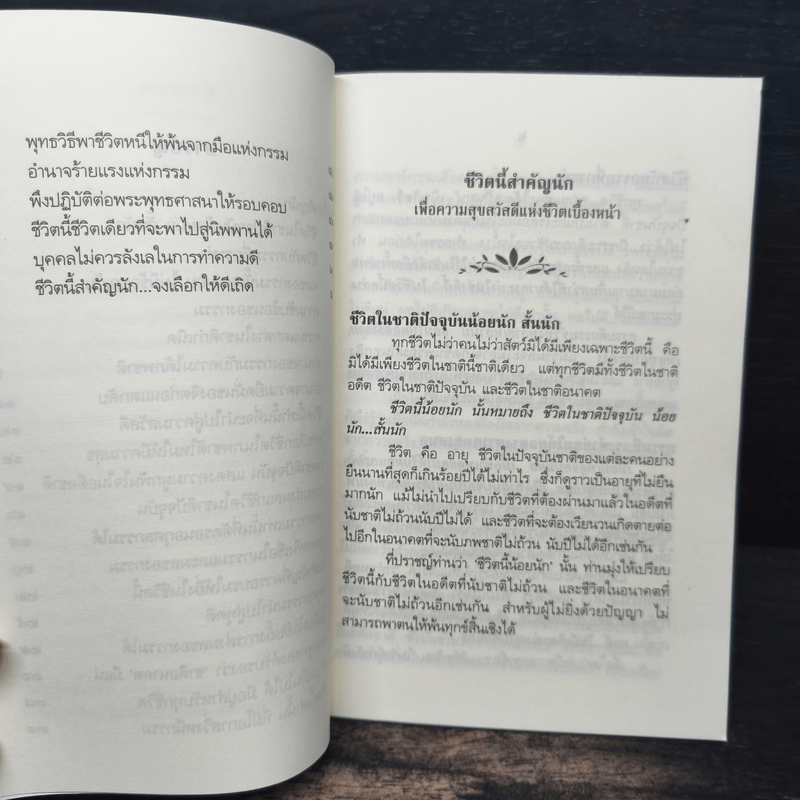 พุทธวิธีพาชีวิตหนีให้พ้นจากมือแห่งกรรม
อำนาจร้ายแรงแห่งกรรม
พึงปฏิบัติต่อพระพุทธศาสนาให้รอบคอบ
ชีวิตนี้ชีวิตเดียวที่จะพาไปสู่นิพพานได้
บุคคลไม่ควรลังเลในการทำความดี
ชีวิตนี้สำคัญนัก...จงเลือกให้ดีเถิด
ชีวิตนี้สำคัญนัก
เพื่อความสุขสวัสดีแห่งชีวิตเบื้องหน้า
ชีวิตในชาติปัจจุบันน้อยนัก สั้นนัก
ทุกชีวิตไม่ว่าคนไม่ว่าสัตว์มิได้มีเพียงเฉพาะชีวิตนี้ คือ
มิได้มีเพียงชีวิตในชาตินี้ชาติเดียว แต่ทุกชีวิตมีทั้งชีวิตในชาติ
อดีต ชีวิตในชาติปัจจุบัน และชีวิตในชาติอนาคต
ชีวิตนี้น้อยนัก นั้นหมายถึง ชีวิตในชาติปัจจุบัน น้อย
นัก...สั้นนัก
ชีวิต คือ อายุ ชีวิตในปัจจุบันชาติของแต่ละคนอย่าง
ยืนนานที่สุดก็เกินร้อยปีได้ไม่เท่าไร ซึ่งก็ดูราวเป็นอายุที่ไม่ยืน
มากนัก แม้ไม่นำไปเปรียบกับชีวิตที่ต้องผ่านมาแล้วในอดีตที่
นับชาติไม่ถ้วนนับปีไม่ได้ และชีวิตที่จะต้องเวียนวนเกิดตายต่อ
ไปอีกในอนาคตที่จะนับภพชาติไม่ถ้วน นับปีไม่ได้อีกเช่นกัน
ที่ปราชญ์ท่านว่า 'ชีวิตนี้น้อยนัก' นั้น ท่านมุ่งให้เปรียบ
ชีวิตนี้กับชีวิตในอดีตที่นับชาติไม่ถ้วน และชีวิตในอนาคตที่
จะนับชาติไม่ถ้วนอีกเช่นกัน สำหรับผู้ไม่ยิ่งด้วยปัญญา ไม่
สามารถพาตนให้พ้นทุกข์สิ้นเชิงได้